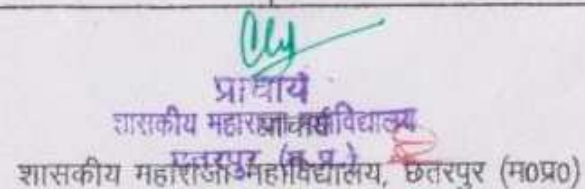 प्राचार्य
शासकीय महाराजा महाविद्यालय
छतरपुर (म.प्र.)
प्राचार्य
शासकीय महाराजा महाविद्यालय, छतरपुर (म0प्र0)